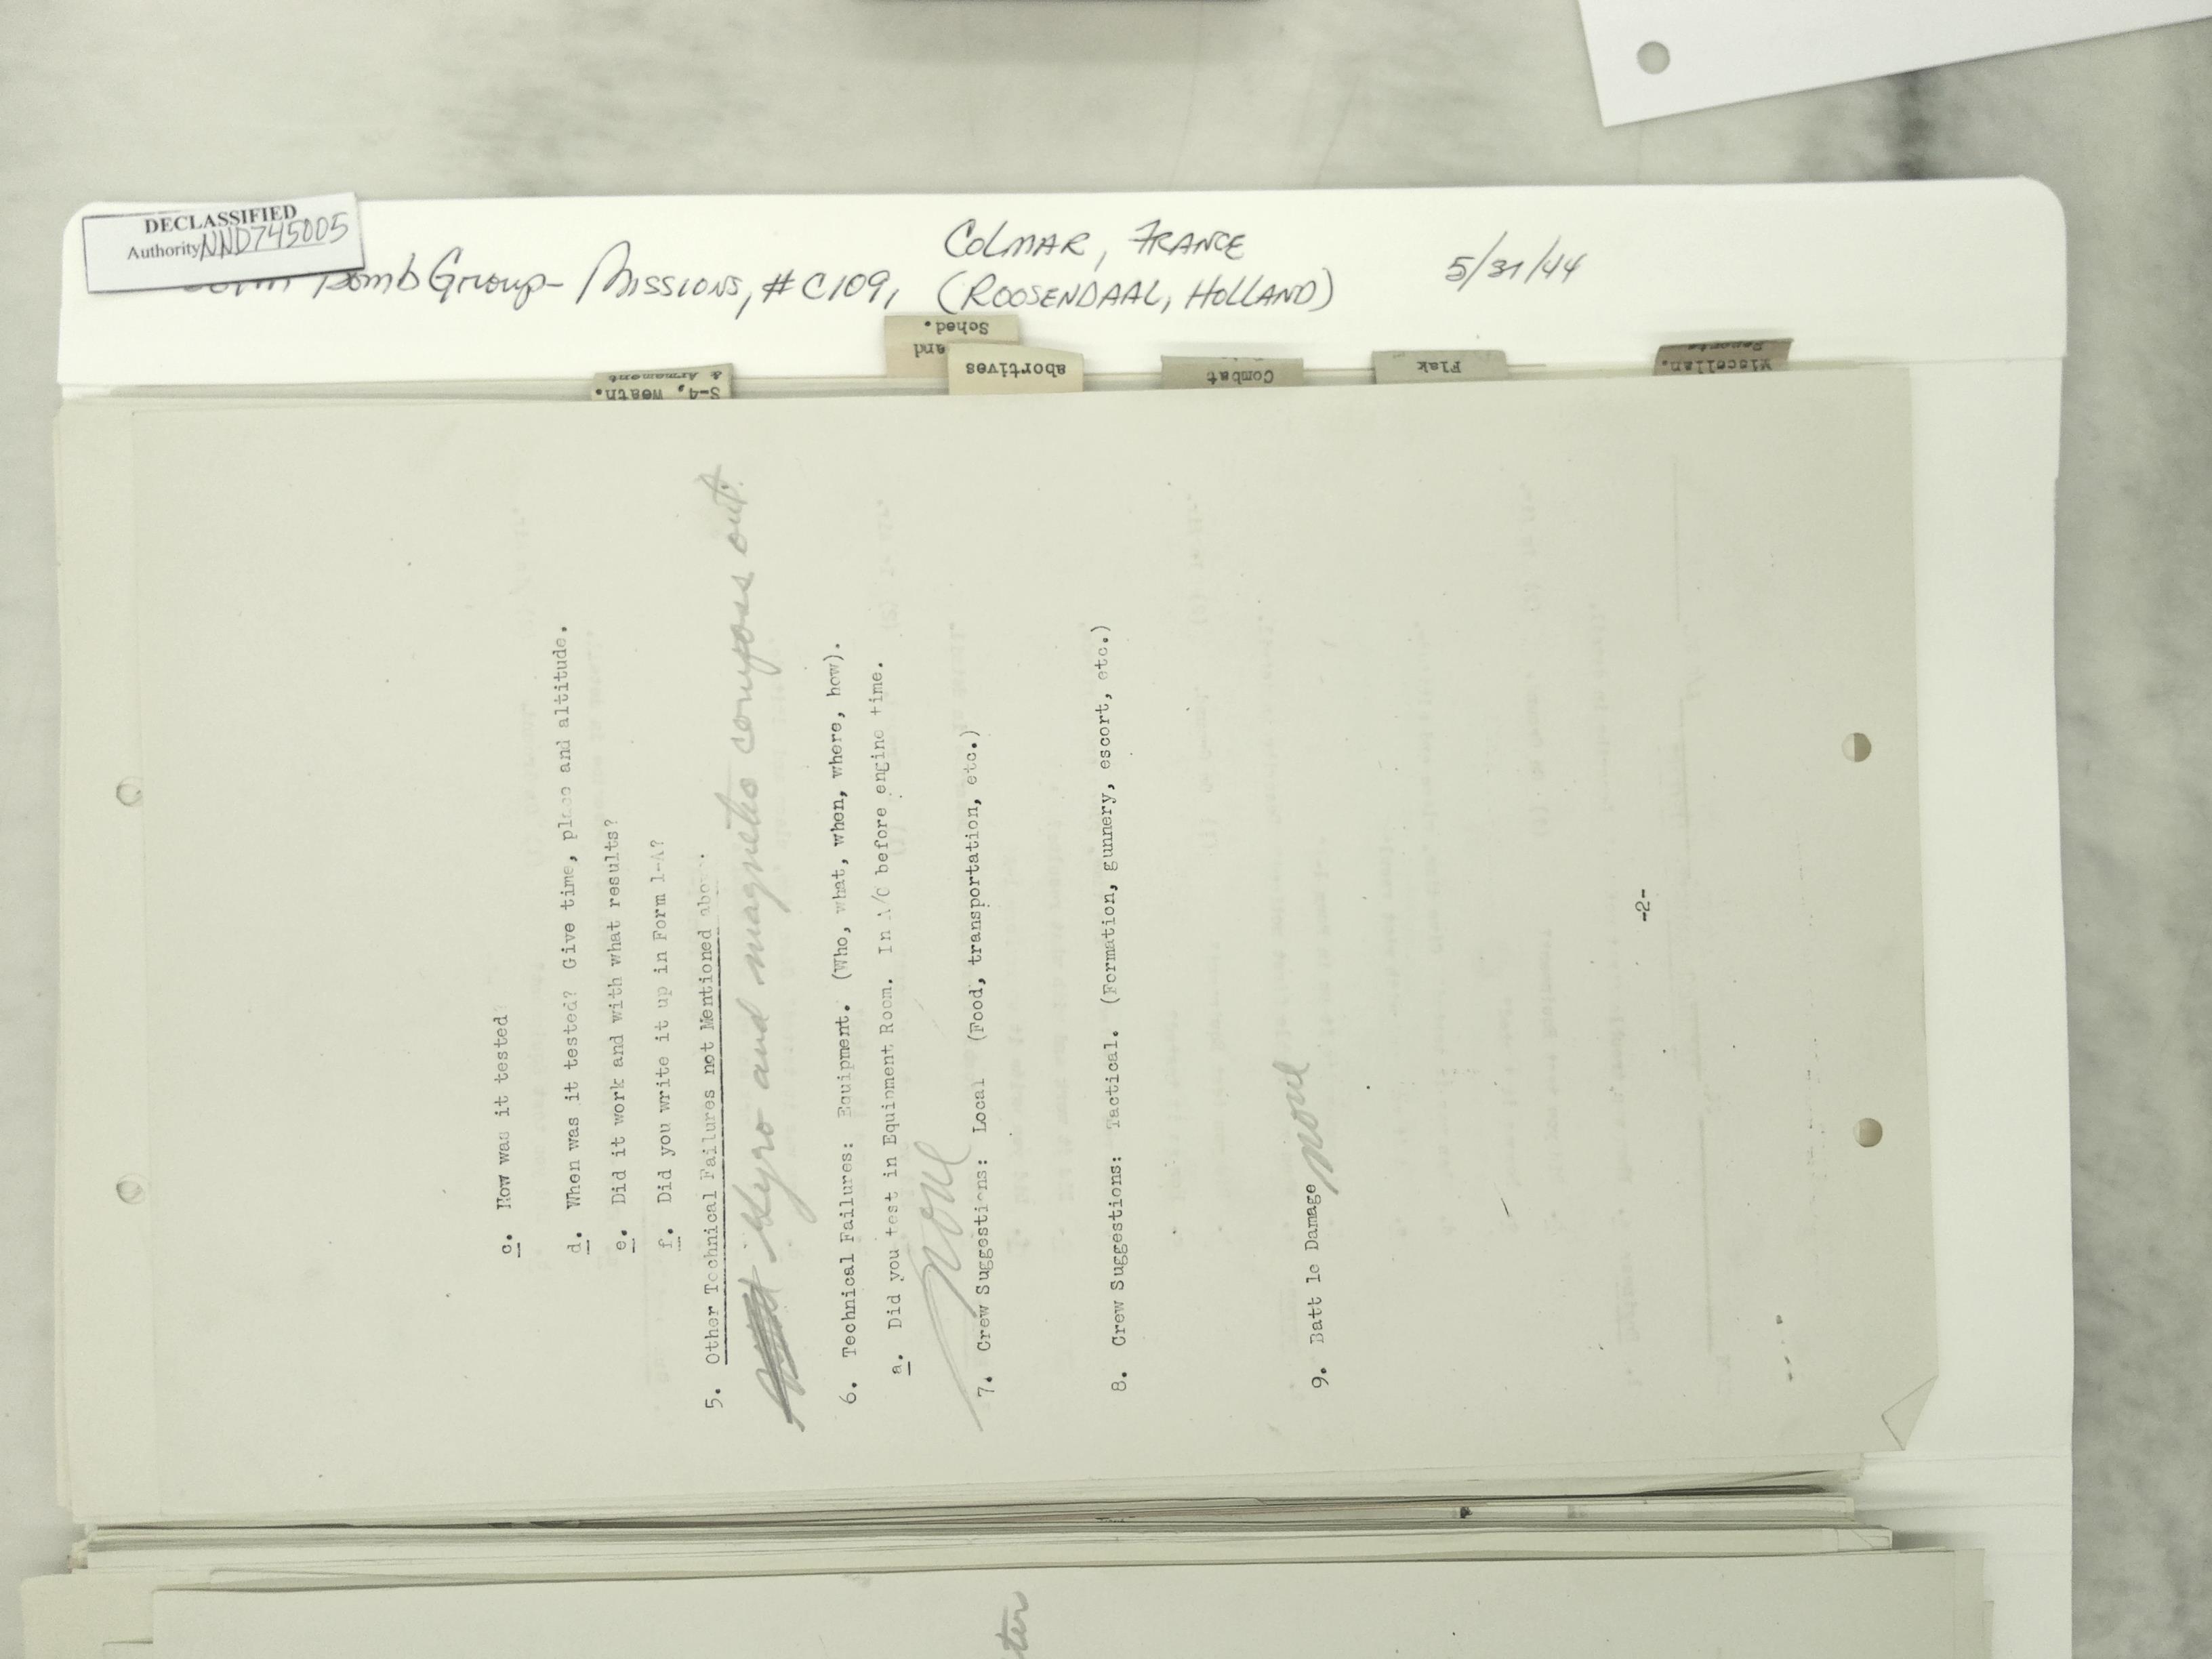 DECLASSIFIED
Authority NND745005
Bomb Group- Missions, #C109,
COLMAR, FRANCE
(ROOSENDAAL, HOLLAND)
5/31/44
S-4, Weath.
& Armament
and
Sched.
abortives
Combat
Flak
Miscellan.
Reports
c. How was it tested?
d. When was it tested? Give time, place and altitude.
e. Did it work and with what results?
f. Did you write it up in Form 1-A?
5. Other Technical Failures not Mentioned above.
Gyro and magneto compass out.
6. Technical Failures: Equipment. (Who, what, when, where, how).
a. Did you test in Equipment Room. In A/C before engine time.
none
7. Crew Suggestions: Local (Food, transportation, etc.)
8. Crew Suggestions: Tactical. (Formation, gunnery, escort, etc.)
9. Batt le Damage none
-2-